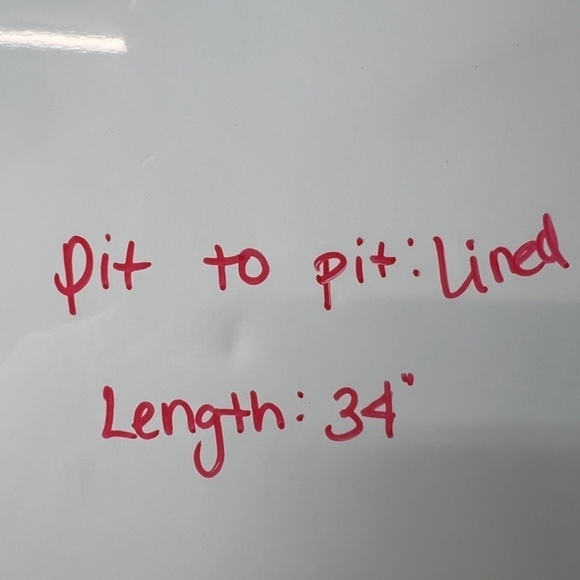 pit to pit: Lined
Length: 34"